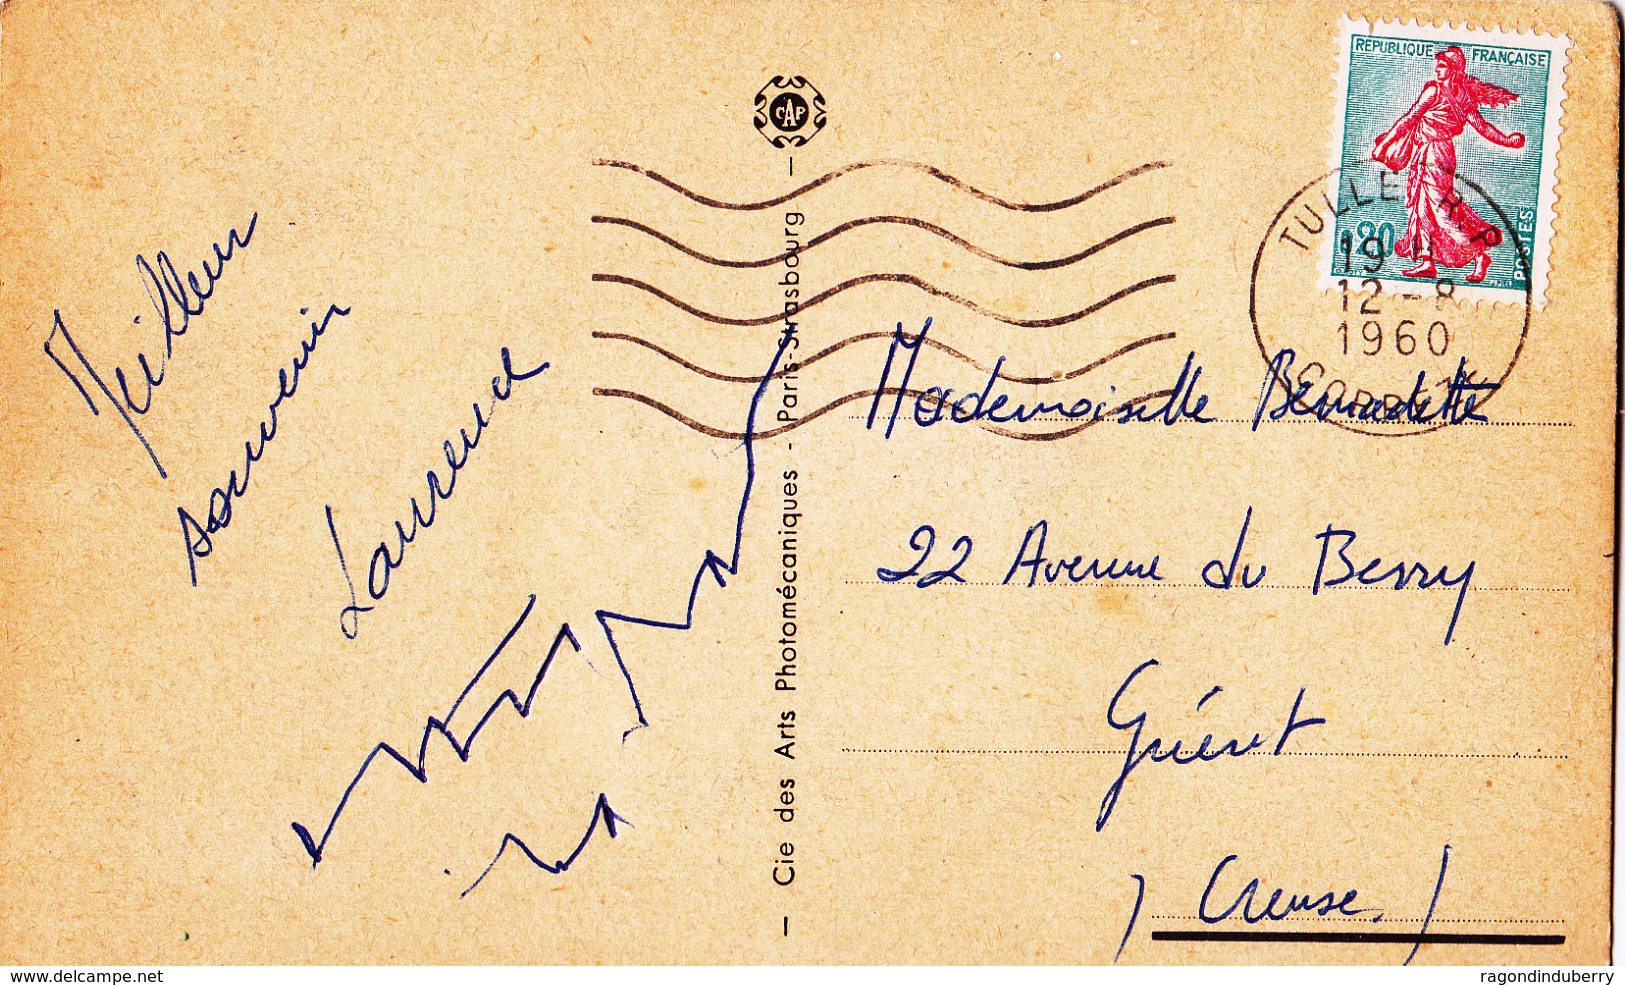 Meilleur
souvenir
Laurence
CAP
— Cie des Arts Photomécaniques - Paris-Strasbourg —
REPUBLIQUE FRANÇAISE
0.20
POSTES
TULLE R.P
19 H
12 - 8
1960
CORREZE
Mademoiselle Bernadette
22 Avenue du Berry
Guéret
(Creuse)
www.delcampe.net
ragondinduberry